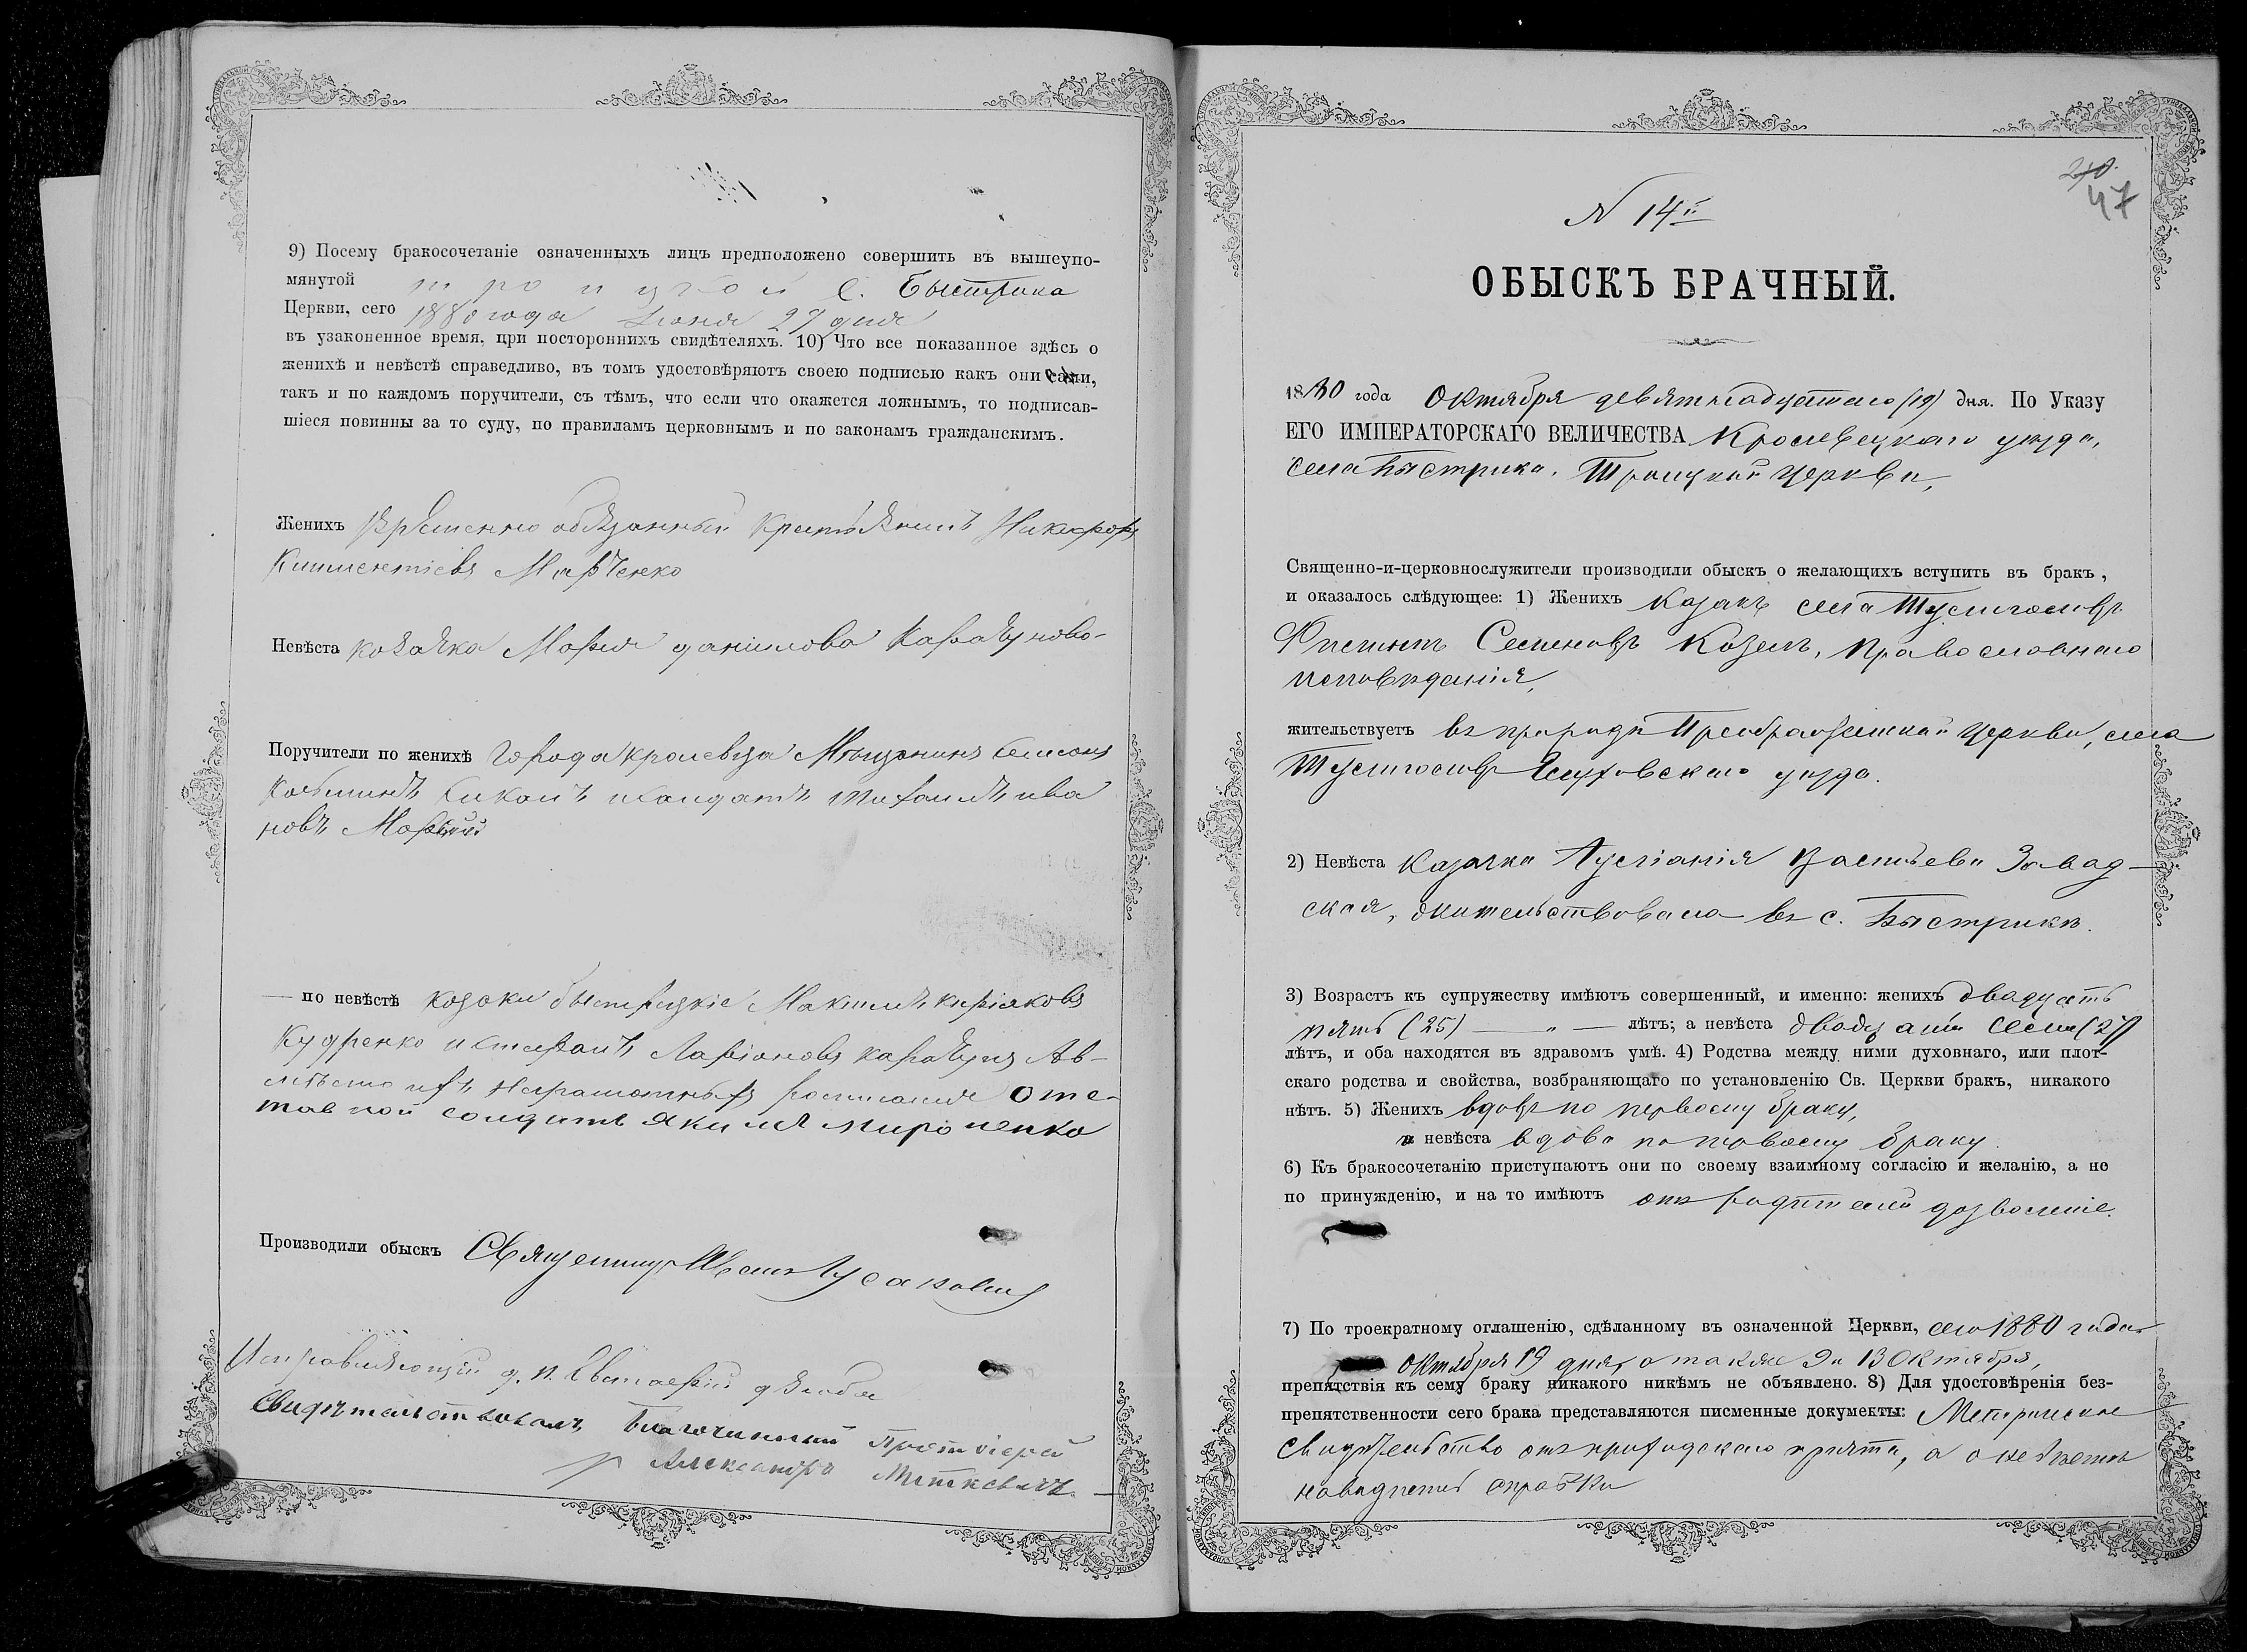 9) Посему бракосочетаніе означенныхъ лицъ предположено совершить въ вышеупо-
мянутой троицкой с. Быстрика
Церкви, сего 1880 года Іюня 29 дня
въ узаконенное время, при постороннихъ свидѣтеляхъ. 10) Что все показанное здѣсь о
женихѣ и невѣстѣ справедливо, въ томъ удостовѣряютъ своею подписью какъ они сами,
такъ и по каждомъ поручители, съ тѣмъ, что если что окажется ложнымъ, то подписав-
шіеся повинны за то суду, по правиламъ церковнымъ и по законамъ гражданскимъ.
Женихъ временно обязанный крестьянинъ Никифоръ
Климентіевъ Марченко
Невѣста козачка Марія данилова Карачунова
Поручители по женихѣ города кролевца Мѣщанинъ
солдатъ михаилъ ива
новъ
по невѣстѣ козаки быстрицкіе Максимъ киріяковъ
Кудренко и стефанъ Ларіоновъ карачунъ Ав-
мѣсто ихъ неграмотныхъ росписался отс-
тавной солдатъ Якимъ мироненко
Производили обыскъ Священникъ
Исправляющій д. п. Евстафій дзюба
Свидѣтельствовалъ Благочинный Протоіерей
Александръ Миткевичъ
47
N 14й
ОБЫСКЪ БРАЧНЫЙ.
1880 года Октября девятнадцатаго (19) дня. По Указу
ЕГО ИМПЕРАТОРСКАГО ВЕЛИЧЕСТВА Кролевецкаго уѣзда,
села Быстрика, Троицкой Церкви,
Священно-и-церковнослужители производили обыскъ о желающихъ вступить въ бракъ,
и оказалось слѣдующее: 1) Женихъ Козакъ села Тулиголовъ
Семеновъ Козелъ, Православнаго
исповѣданія,
жительствуетъ въ приходѣ Преображенской Церкви, села
Тулиголовъ Глуховскаго уѣзда.
2) Невѣста Казачка Васильева Завад-
ская, жительствовала въ с. Быстрикѣ.
3) Возрастъ къ супружеству имѣютъ совершенный, и именно: женихъ двадцать
пять (25) — „ — лѣтъ; а невѣста двадцать семь (27)
лѣтъ, и оба находятся въ здравомъ умѣ. 4) Родства между ними духовнаго, или плот-
скаго родства и свойства, возбраняющаго по установленію Св. Церкви бракъ, никакого
нѣтъ. 5) Женихъ вдовъ по первому браку,
и невѣста вдова по первому браку.
6) Къ бракосочетанію приступаютъ они по своему взаимному согласію и желанію, а не
по принужденію, и на то имѣютъ отъ родителей дозволеніе.
7) По троекратному оглашенію, сдѣланному въ означенной Церкви, сего 1880 года
октября 19 дня, а также 9 и 13 Октября,
препятствія къ сему браку никакого никѣмъ не объявлено. 8) Для удостовѣренія без-
препятственности сего брака представляются писменные документы: Метрическое
свидѣтельство отъ приходскаго причта, а о невѣстѣ
наведены справки